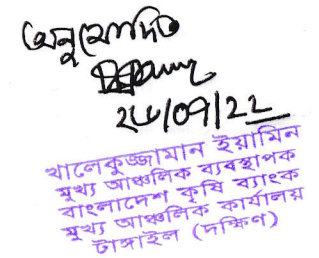 অনুমোদিত
২৬/০৭/২২
খালেকুজ্জামান ইয়ামিন
মুখ্য আঞ্চলিক ব্যবস্থাপক
বাংলাদেশ কৃষি ব্যাংক
মুখ্য আঞ্চলিক কার্যালয়
টাঙ্গাইল (দক্ষিণ)